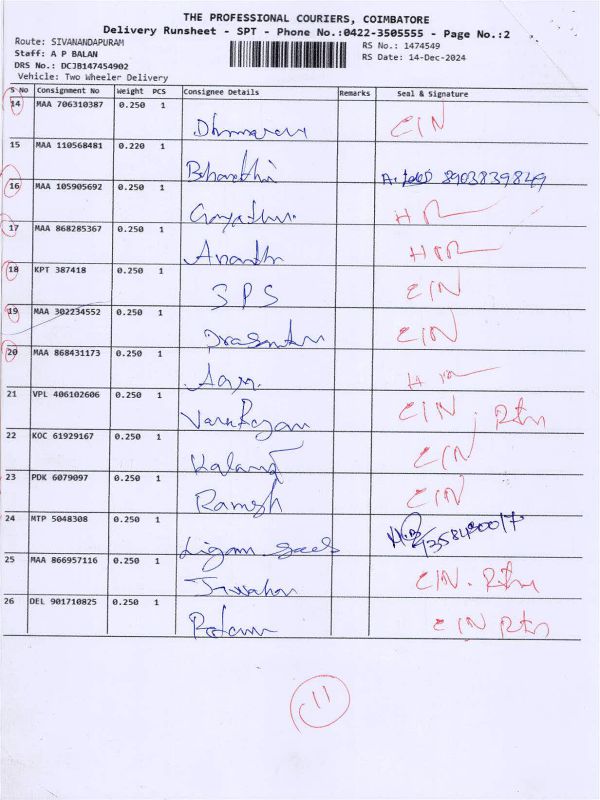 THE PROFESSIONAL COURIERS, COIMBATORE
Delivery Runsheet - SPT - Phone No.:0422-3505555 - Page No.:2
Route: SIVANANDAPURAM
Staff: A P BALAN
DRS No.: DCJB147454902
Vehicle: Two Wheeler Delivery
RS No.: 1474549
RS Date: 14-Dec-2024
S No Consignment No Weight PCS Consignee Details Remarks Seal & Signature
14 MAA 706310387 0.250 1
CIN
15 MAA 110568481 0.220 1
Bharathi 8903839849
16 MAA 105905692 0.250 1
Gayathri
17 MAA 868285367 0.250 1
Ananth
18 KPT 387418 0.250 1
SPS CIN
19 MAA 302234552 0.250 1
CIN
20 MAA 868431173 0.250 1
21 VPL 406102606 0.250 1
Varatharajan CIN. Rtn
22 KOC 61929167 0.250 1
CIN
23 PDK 6079097 0.250 1
Ramesh CIN
24 MTP 5048308 0.250 1
25 MAA 866957116 0.250 1
CIN. Rtn
26 DEL 901710825 0.250 1
CIN Rtn
11